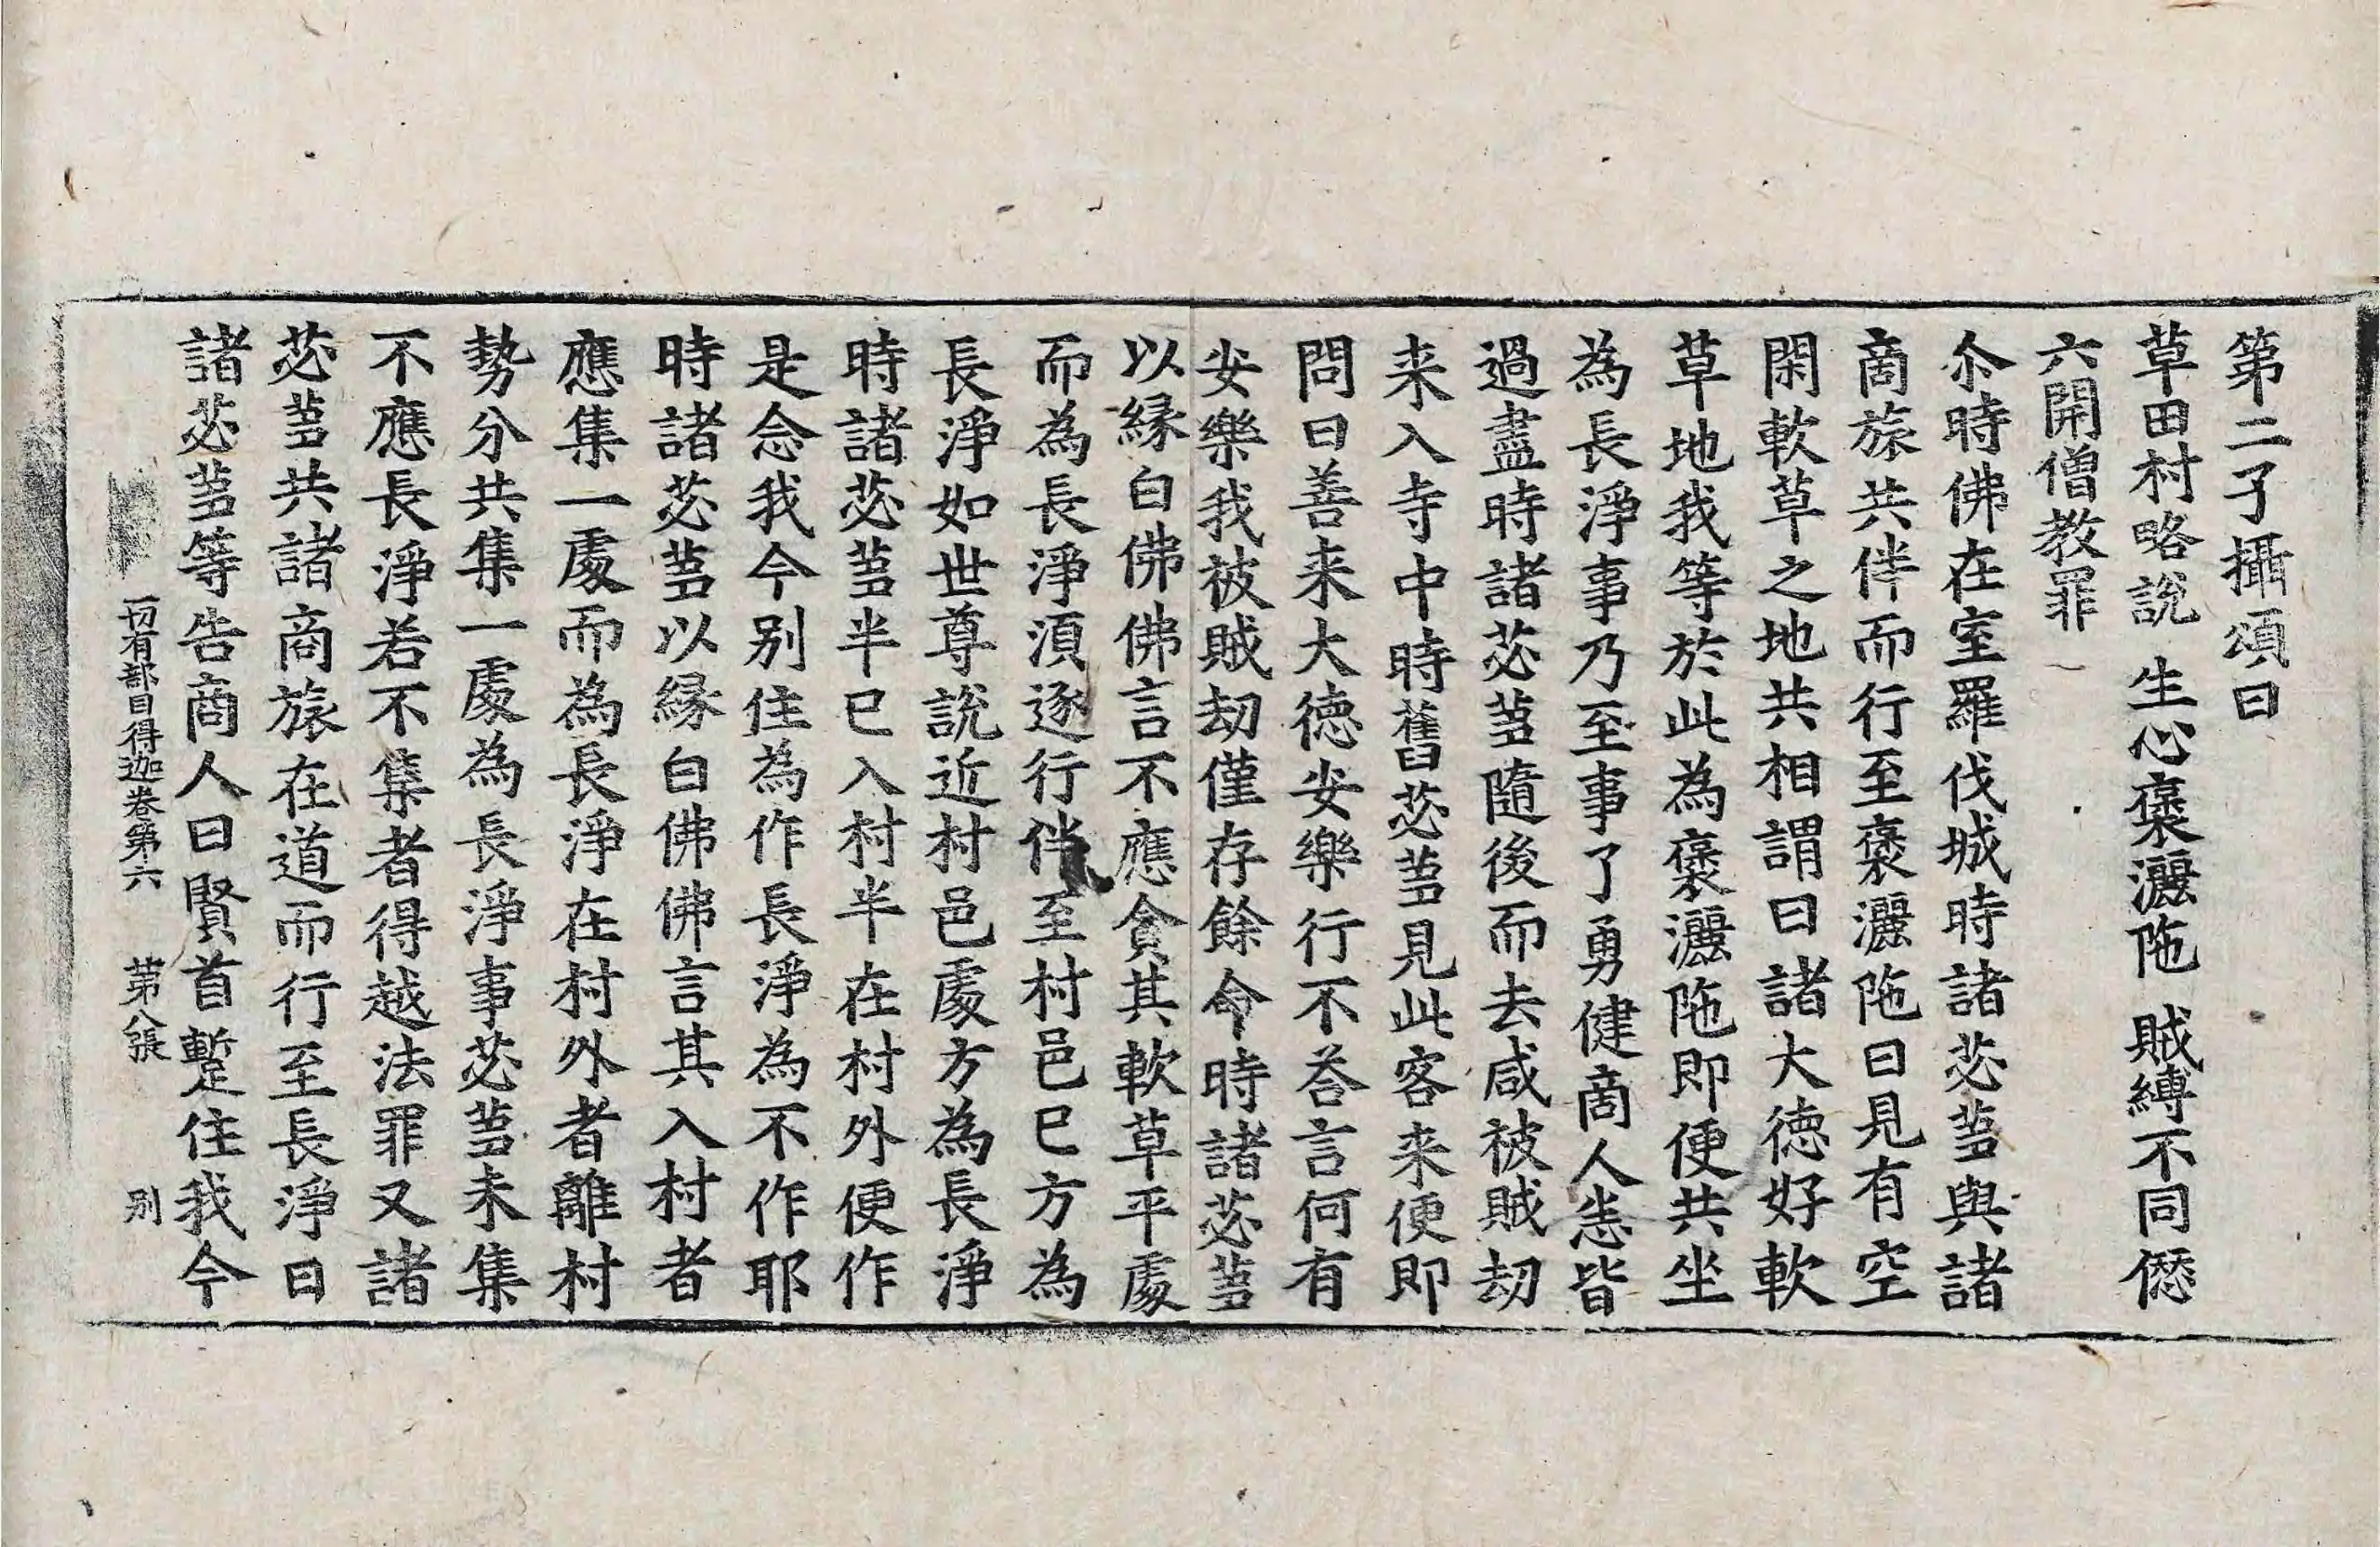 第二子攝頌曰
草田村略說　生心褒灑陁　賊縛不同愆
六開僧教罪
尒時佛在室羅伐城時諸苾蒭與諸
商旅共伴而行至褒灑陁日見有空
閑軟草之地共相謂曰諸大徳好軟
草地我等於此為褒灑陁即便共坐
為長淨事乃至事了勇健商人恙皆
過盡時諸苾蒭隨後而去咸被賊劫
来入寺中時舊苾蒭見此客来便即
問曰善来大徳安樂行不荅言何有
安樂我被賊劫僅存餘命時諸苾蒭
以縁白佛佛言不應貪其軟草平處
而為長淨湏逐行伴至村邑已方為
長淨如世尊說近村邑處方為長淨
時諸苾蒭半已入村半在村外便作
是念我今別住為作長淨為不作耶
時諸苾蒭以縁白佛佛言其入村者
應集一處而為長淨在村外者離村
勢分共集一處為長淨事苾蒭未集
不應長淨若不集者得越法罪又諸
苾蒭共諸商旅在道而行至長淨日
諸苾蒭等告商人曰賢首蹔住我今
一切有部目得迦卷第六　第八張　別